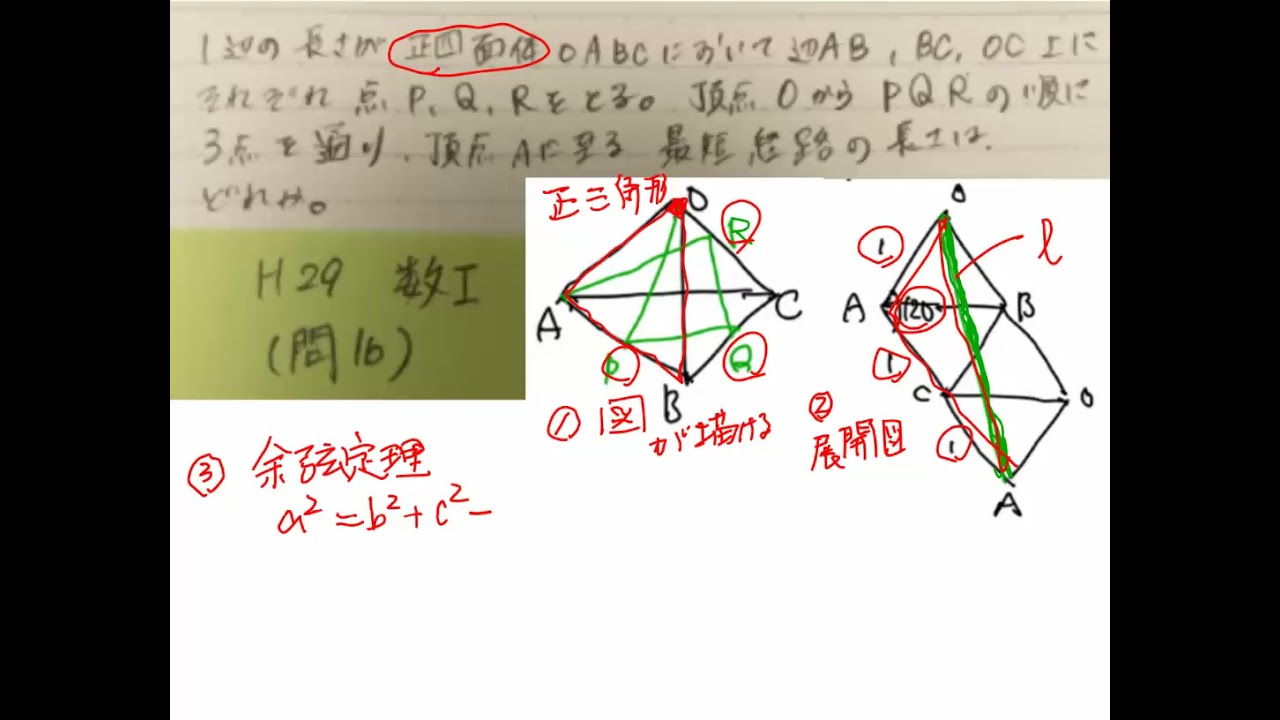 1辺の長さが正四面体OABCにおいて辺AB,BC,OC上に
それぞれ点P,Q,Rをとる。頂点OからPQRの順に
3点を通り、頂点Aに至る最短経路の長さは、
どれか。
H29 数I
(問16)
正三角形
O
R
A
C
P
Q
B
① 図
が描ける
O
①
l
A
120
B
①
C
O
②
展開図
①
A
③ 余弦定理
a²=b²+c²-